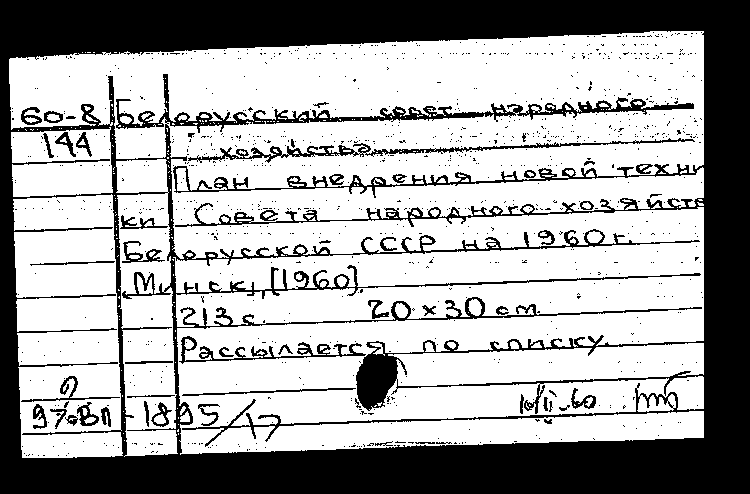 60-8 Белорусский совет народного
144 хозяйства.
План внедрения новой техни
ки Совета народного хозяйств
Белорусской ССР на 1960 г.
Минск, [1960].
213 с. 20 × 30 см.
Рассылается по списку.
-1895/17 16/II-60